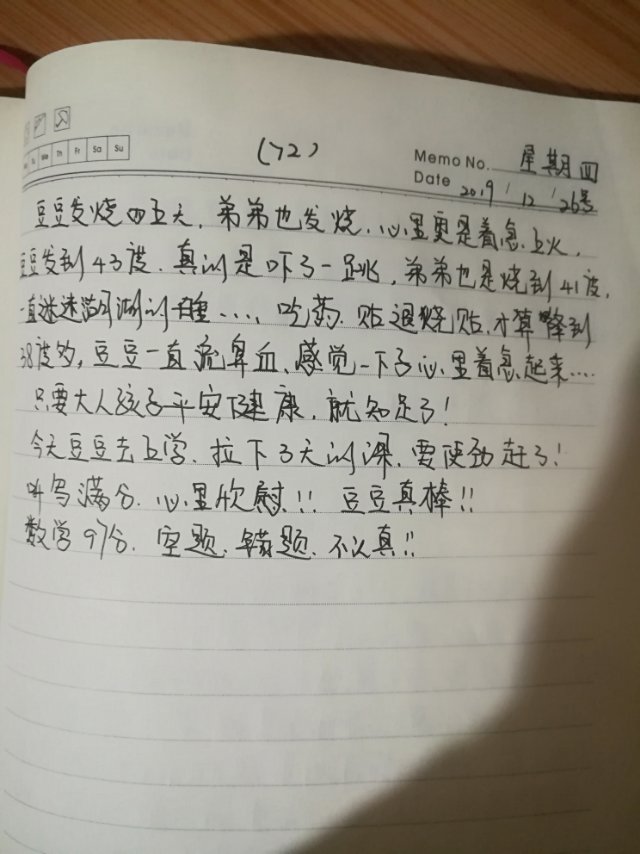 We Th Fr Sa Su
(72)
Memo No. 星期四
Date 2019 / 12 / 26号
豆豆发烧四五天，弟弟也发烧，心里更是着急上火，
豆豆发到43度，真的是吓了一跳，弟弟也是烧到41度，
一直迷迷湖湖的睡....，吃药、贴退烧贴，才算降到
38度的，豆豆一直流鼻血、感觉一下子心里着急起来....
只要大人孩子平安健康，就知足了！
今天豆豆去上学、拉下3天的课、要使劲赶了！
听写满分、心里欣慰！！ 豆豆真棒！！
数学97分、空题、错题、不认真！！